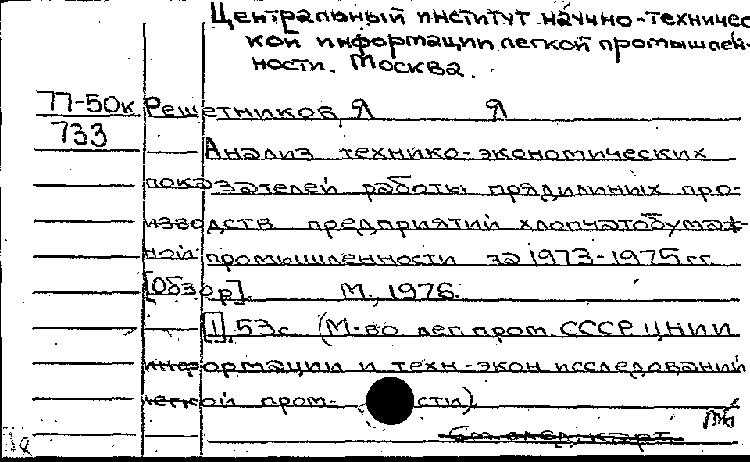 Центральный институт научно-техничес
кой информации легкой промышлен-
ности. Москва.
77-50к Решетников Я Я
733
Анализ технико-экономических
показателей работы прядильных про-
изводств предприятий хлопчатобумаж-
ной промышленности за 1973-1975 гг.
[Обзор]. М., 1976.
[1], 53с. (М-во лег. пром. СССР. ЦНИИ
информации и техн-экон исследований
легкой пром- сти)
См. след. карт.